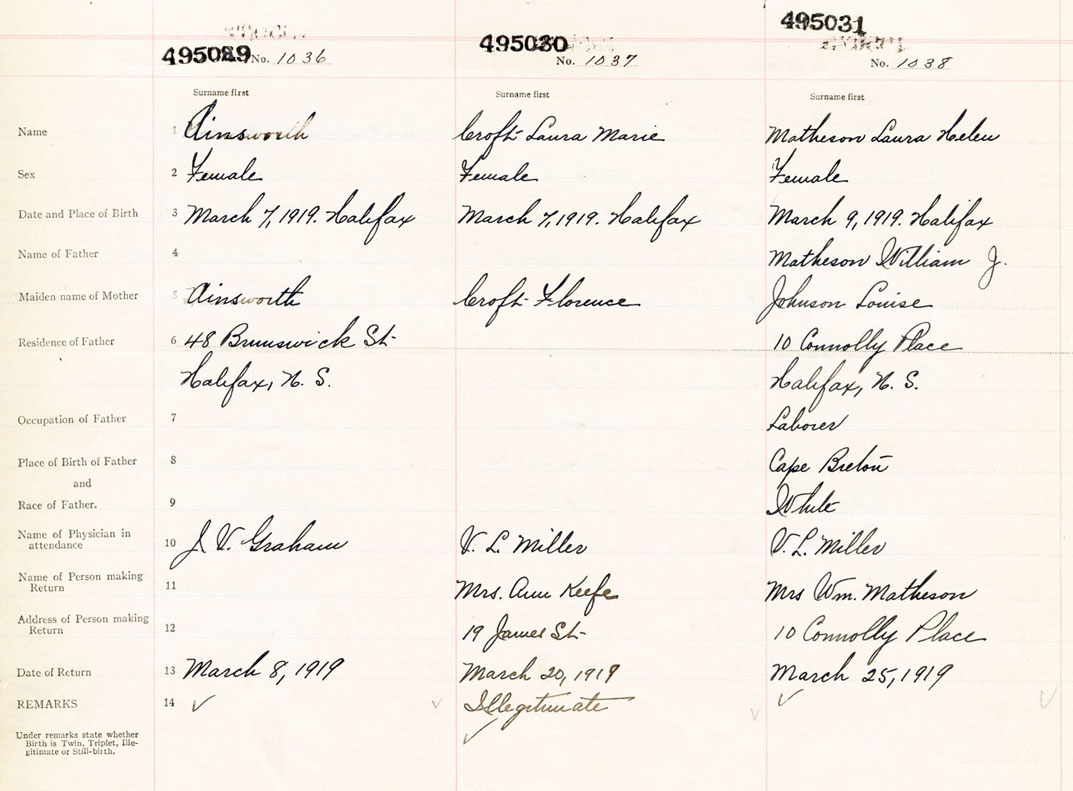 495029 495030 495031
No. 1036 No. 1037 No. 1038
Surname first Surname first Surname first
Name 1 Ainsworth Croft Laura Marie Matheson Laura Helen
Sex 2 Female Female Female
Date and Place of Birth 3 March 7, 1919. Halifax March 7, 1919. Halifax March 9, 1919. Halifax
Name of Father 4 Matheson William J.
Maiden name of Mother 5 Ainsworth Croft Florence Johnson Louise
Residence of Father 6 48 Brunswick St 10 Connolly Place
Halifax, N. S. Halifax, N. S.
Occupation of Father 7 Laborer
Place of Birth of Father 8 Cape Breton
and
Race of Father. 9 White
Name of Physician in
attendance 10 J. V. Graham V. L. Miller V. L. Miller
Name of Person making
Return 11 Mrs. Ann Keefe Mrs Wm. Matheson
Address of Person making
Return 12 19 James St 10 Connolly Place
Date of Return 13 March 8, 1919 March 20, 1919 March 25, 1919
REMARKS 14 ✓ Illegitimate ✓
✓
Under remarks state whether
Birth is Twin, Triplet, Ille-
gitimate or Still-birth.